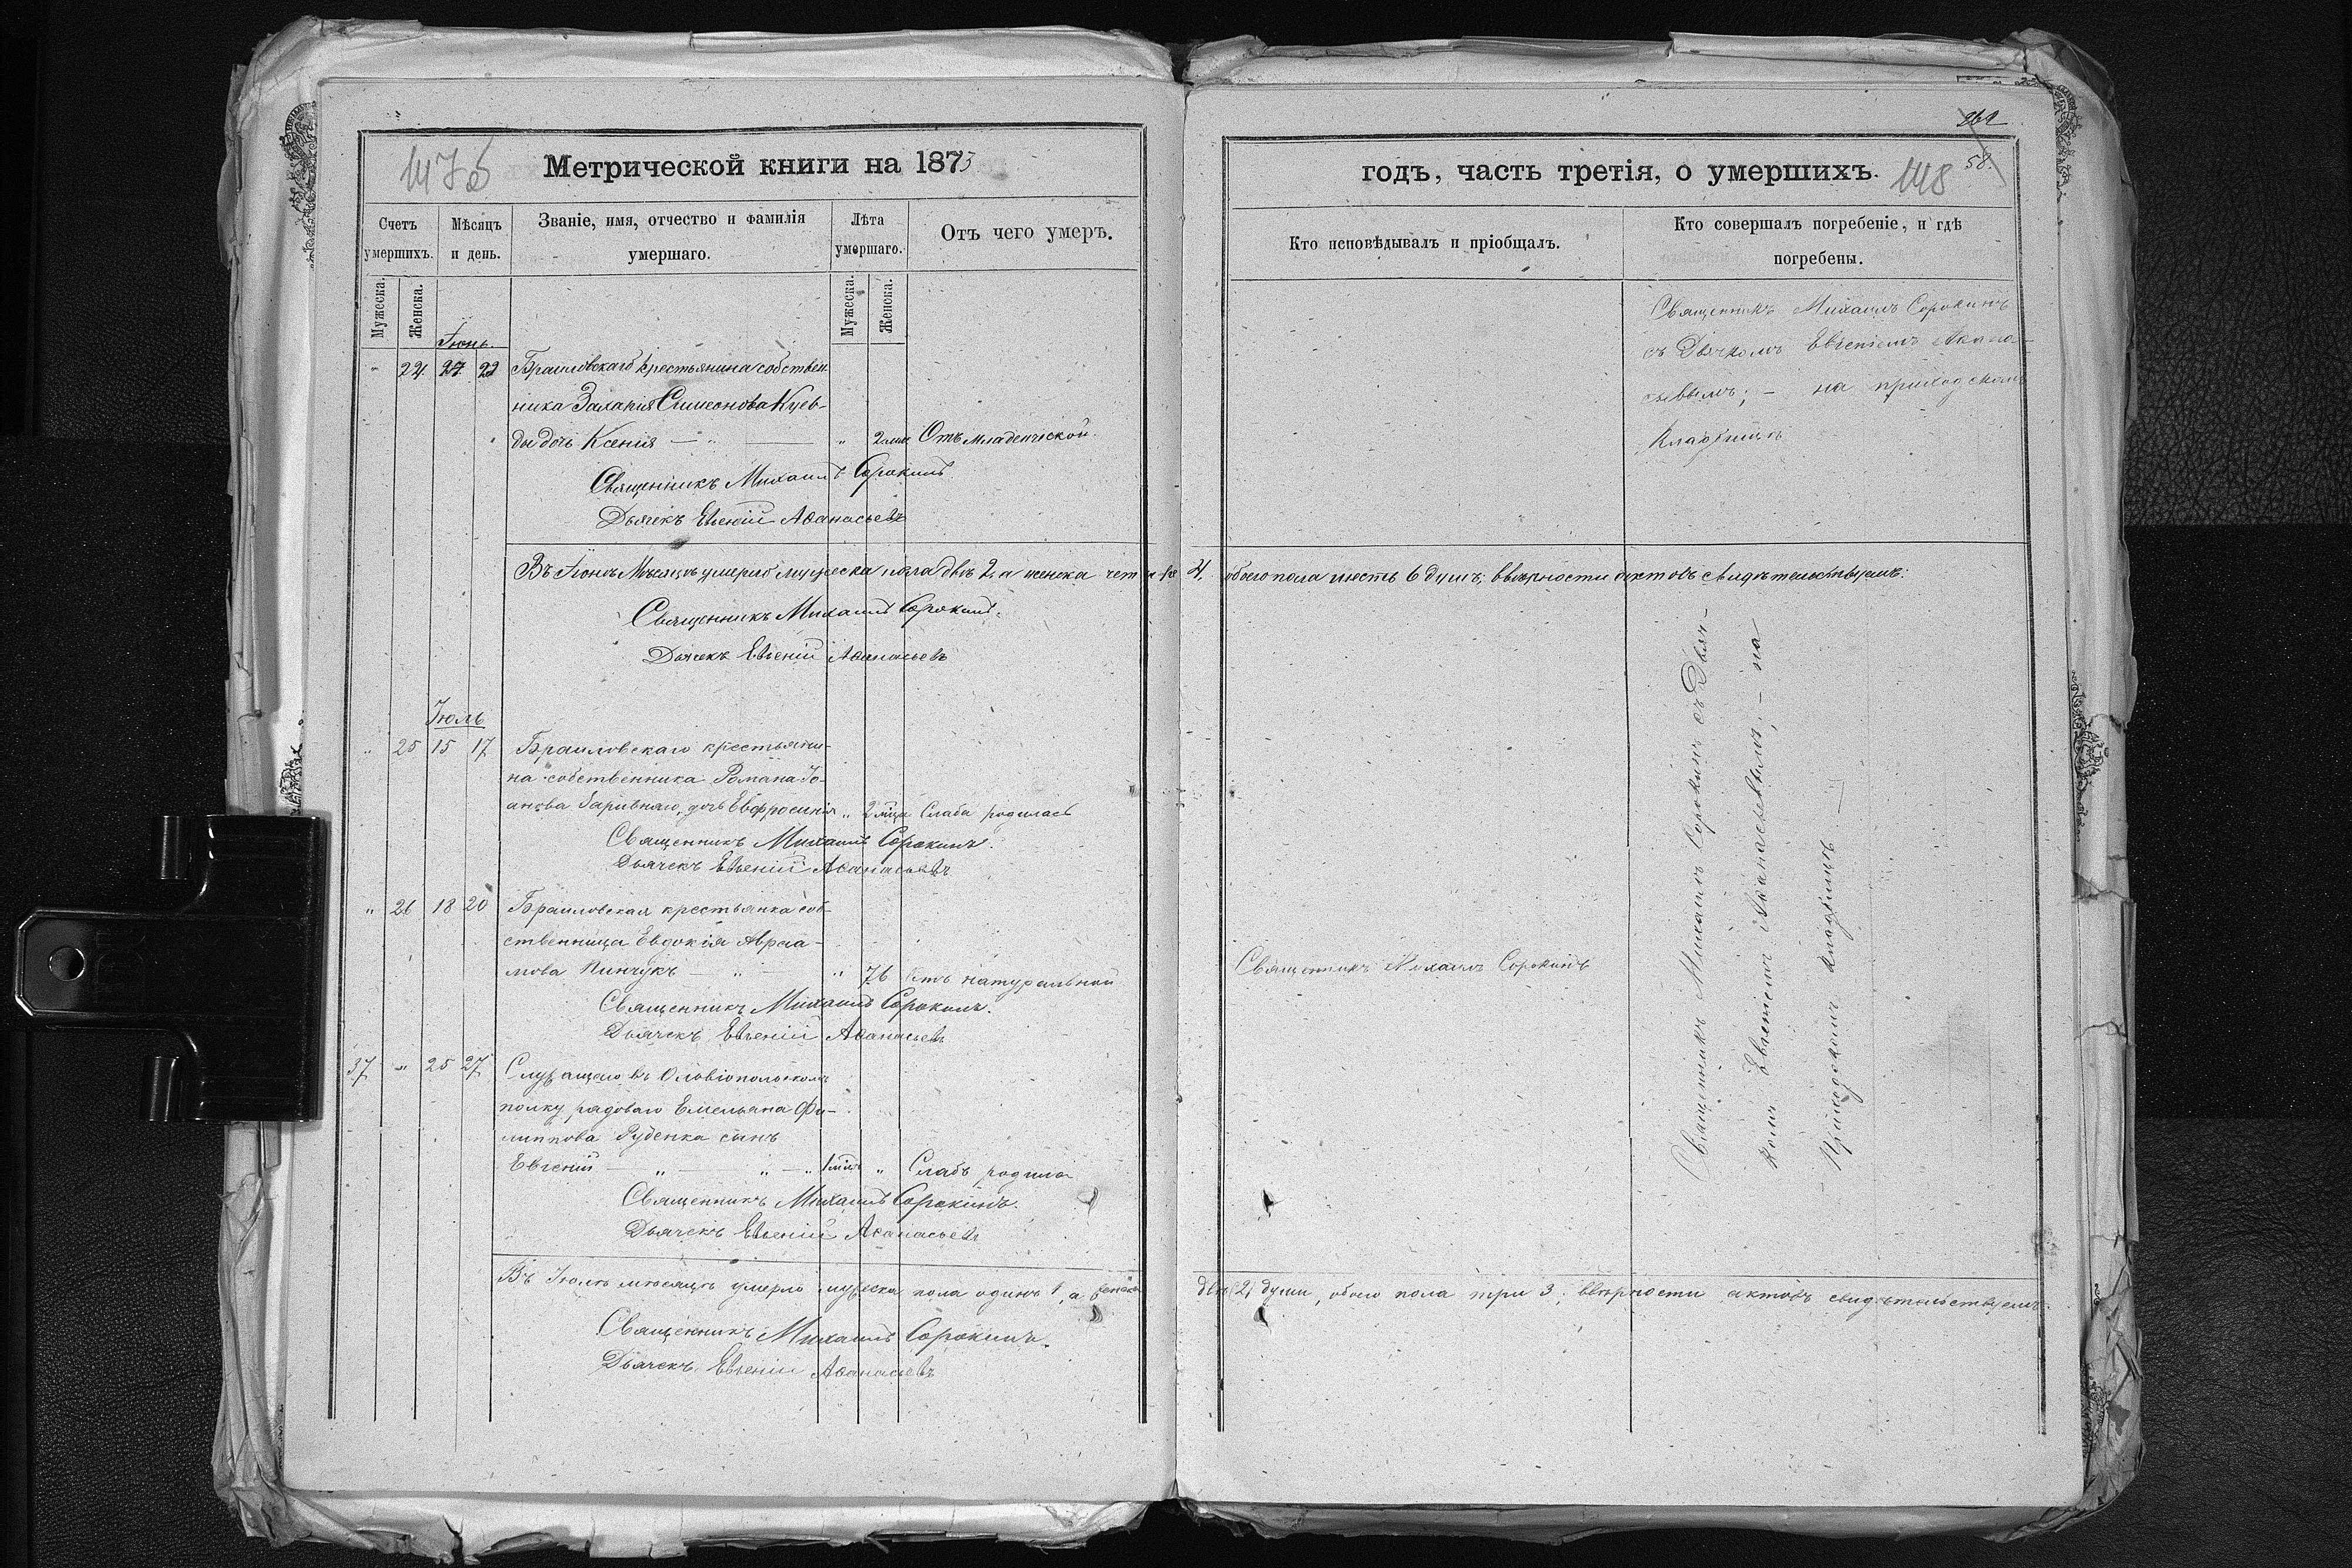 Метрической книги на 1873
Счетъ умершихъ.
Мѣсяцъ и день.
Званіе, имя, отчество и фамилія умершаго.
Лѣта умершаго.
Отъ чего умеръ.
Мужеска.
Женска.
Мужеска.
Женска.
Іюнь.
24 27 29 Браиловскаго крестьянина собствен
ника Захарія Симеонова Куев-
ды дочь Ксенія — „ — „ Отъ младенческой.
Священникъ Михаилъ Сорокинъ
Дьячекъ Евгеній Аѳанасьевъ
Въ Іюнѣ Мѣсяцѣ умерло мужеска пола двѣ 2, а женска четыре
Священникъ Михаилъ Сорокинъ.
Дьячекъ Евгеній Аѳанасьевъ
Іюль
„ 25 15 17 Браиловскаго крестьяни-
на собственника Романа Іо-
анова дочь Евфросинія „ 2 м̃ца Слаба родилась
Священникъ Михаилъ Сорокинъ.
Дьячекъ Евгеній Аѳанасьевъ
„ 26 18 20 Браиловская крестьянка соб-
ственница Евдокія Авраа-
мова Пинчукъ — „ — „ 76 Отъ натуральной
Священникъ Михаилъ Сорокинъ.
Дьячекъ Евгеній Аѳанасьевъ
37 „ 25 27 Служащего въ Ольвіопольскомъ
полку рядоваго Емельяна Фи-
липпова Руденка сынъ
Евгеній — „ — „ — „ 1 „ Слабъ родился
Священникъ Михаилъ Сорокинъ.
Дьячекъ Евгеній Аѳанасьевъ
Въ Іюлѣ мѣсяцѣ умерло мужеска пола одинъ 1, а женска
Священникъ Михаилъ Сорокинъ.
Дьячекъ Евгеній Аѳанасьевъ
годъ, часть третія, о умершихъ. 148
58.
Кто исповѣдывалъ и пріобщалъ.
Кто совершалъ погребеніе, и гдѣ
погребены.
Священникъ Михаилъ Сорокинъ
съ Дьячкомъ Евгеніемъ Аѳана-
сьевымъ; — на приходскомъ
кладбищѣ
4, обоего пола шесть 6 душъ; въ вѣрности актовъ свидѣтельствуемъ:
Священникъ Михаилъ Сорокинъ
Священникъ Михаилъ Сорокинъ съ Дьяч-
комъ Евгеніемъ Аѳанасьевымъ; — на
приходскомъ кладбищѣ —
двѣ (2) души, обоего пола три 3; въ вѣрности актовъ свидѣтельствуемъ.